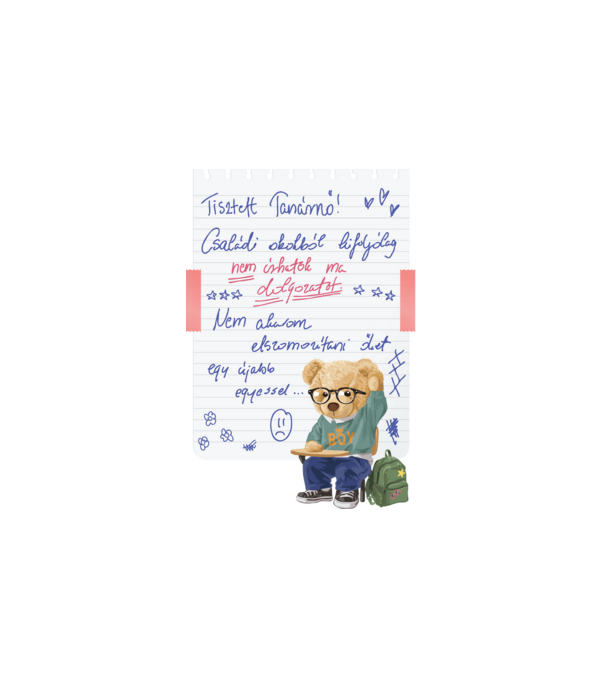 Tisztelt Tanárnő!
Családi okokból kifolyólag
nem írhatok ma
dolgozatot.
Nem akarom
elszomorítani őket
egy újabb
egyessel...
BOY